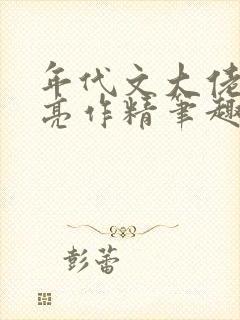 年代文大佬
亮作精笔趣
彭蕾